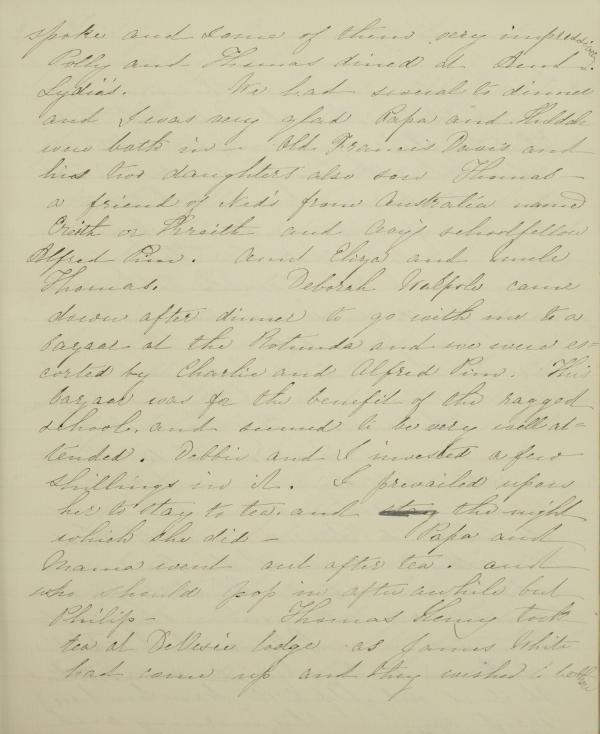 spoke and some of them very impressive
Polly and Thomas dined at Aunt
Lydia's. We had several to dinner
and I was very glad Papa and
were both in - Old Francis Davis and
his two daughters also son Thomas
a friend of Ned's from Australia named
or and schoolfellow
Alfred Pim. Aunt Eliza and Uncle
Thomas. Deborah Walpole came
down after dinner to go with me to a
bazaar at the Rotunda and we were es=
corted by Charlie and Alfred Pim. This
bazaar was for the benefit of the ragged
schools, and seemed to be very well at=
tended. Debbie and I invested a few
shillings in it. I prevailed upon
her to stay to tea and stay the night
which she did - Papa and
Mama went out after tea. and
who should pop in after awhile but
Philip - Thomas Henry took
tea at DeVesci lodge as James White
had come up and they wished